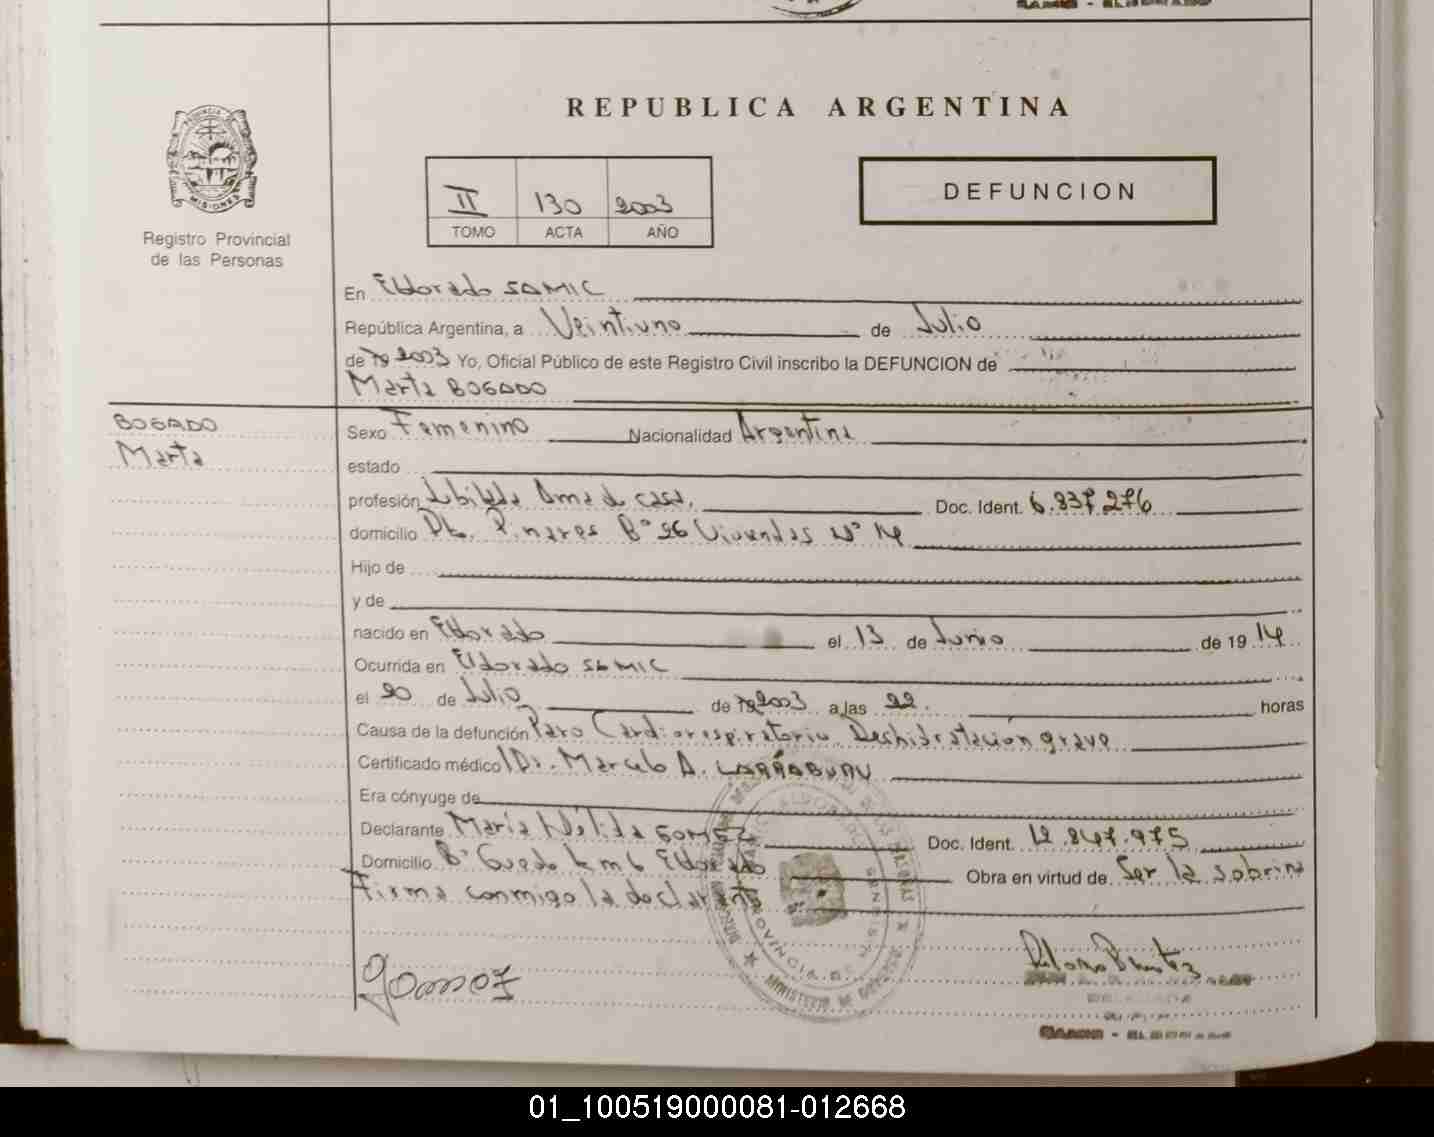 REPUBLICA ARGENTINA
PROVINCIA DE
MISIONES
Registro Provincial
de las Personas
II 130 2003
TOMO ACTA AÑO
DEFUNCION
En Eldorado SAMIC
República Argentina, a Veintiuno de Julio
de 19 2003 Yo, Oficial Público de este Registro Civil inscribo la DEFUNCION de
Marta BOGADO
BOGADO
Marta
Sexo Femenino Nacionalidad Argentina
estado
profesión Jubilada Ama de casa. Doc. Ident. 6.837.276
domicilio Pto. Pinares Bº 26 Viviendas Nº 14
Hijo de
y de
nacido en Eldorado el 13 de Junio de 19 14
Ocurrida en Eldorado SAMIC
el 20 de Julio de 19 2003 a las 22. horas
Causa de la defunción Paro Cardiorespiratorio, Deshidratación grave
Certificado médico Dr. Marcelo A. LARRABURU
Era cónyuge de
Declarante María Nélida GOMEZ Doc. Ident. 12.847.975
Domicilio Bº Guedo km 6 Eldorado Obra en virtud de Ser la sobrina
Firma conmigo la declarante
PROVINCIA DE
MINISTERIO DE GOBIERNO
Gomez
SAMIC - ELDORADO
01_100519000081-012668